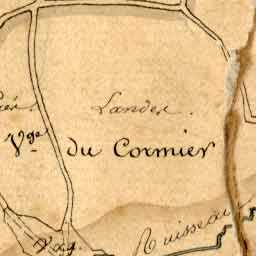 Landes.
Vge du Cormier
Ruisseau